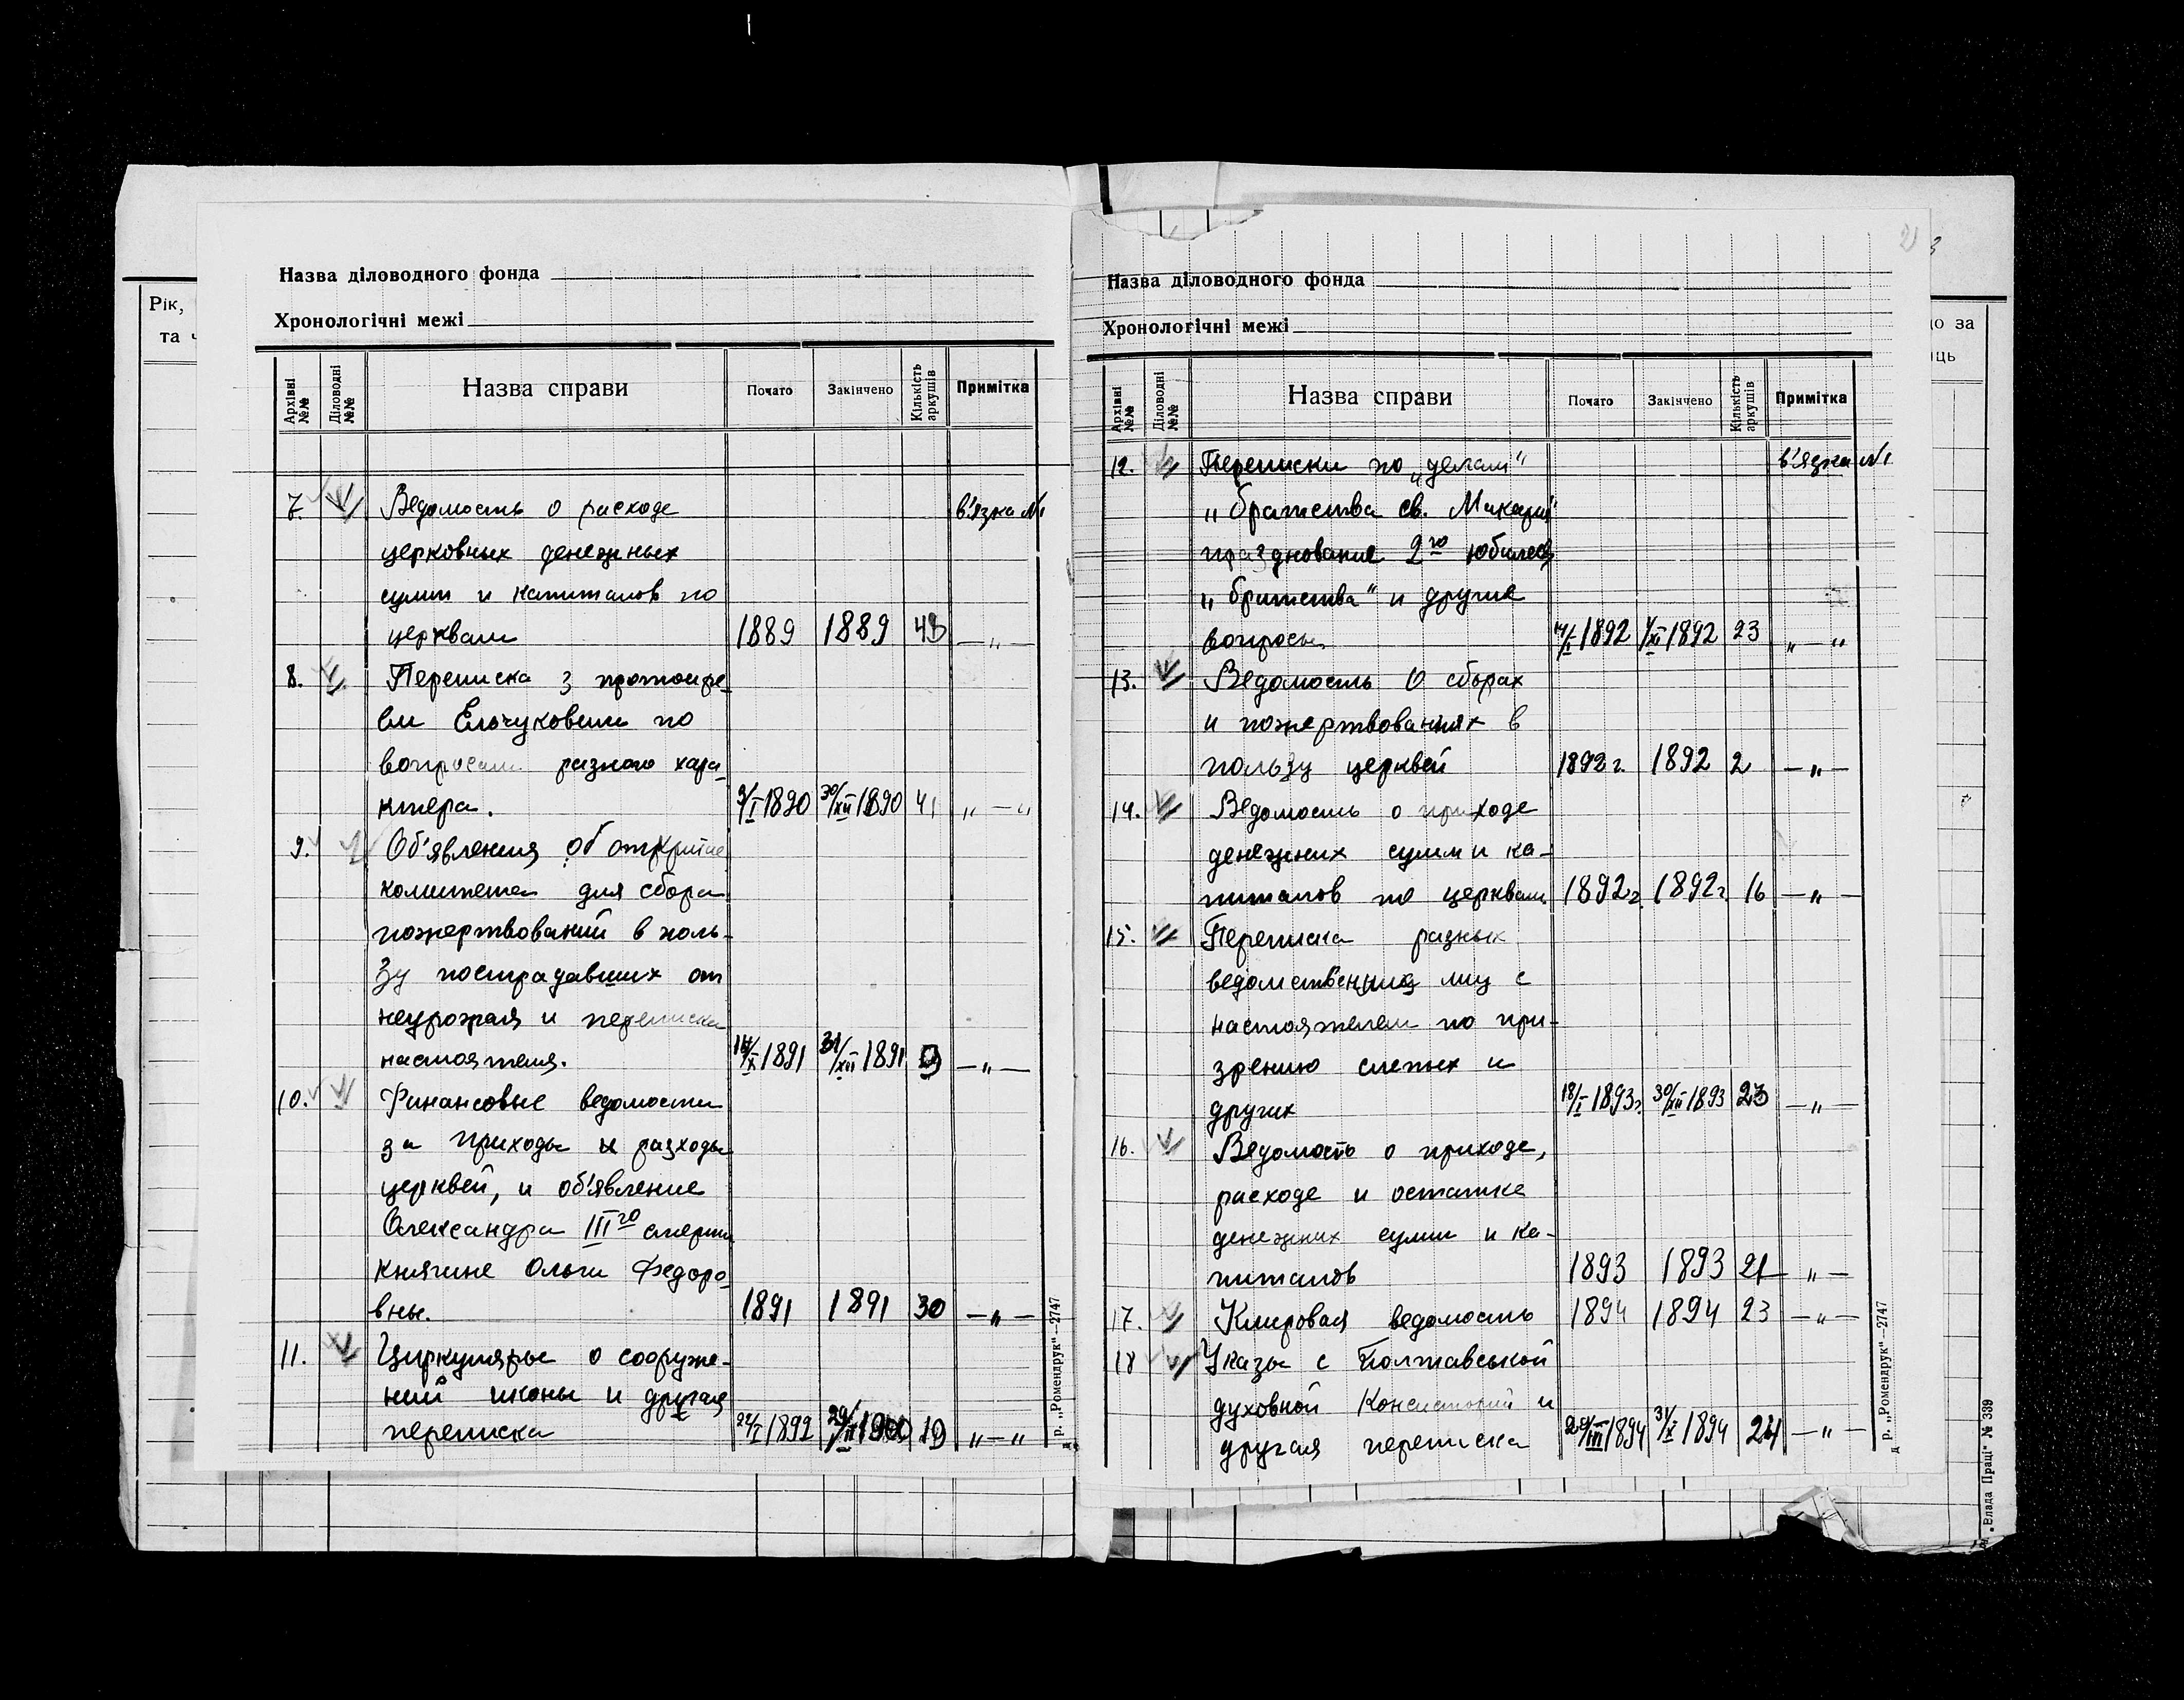 Рік,
та ч
Назва діловодного фонда
Хронологічні межі
Архівні №№ Діловодні №№ Назва справи Почато Закінчено Кількість аркушів Примітка
7. Ведомость о расходе в'язка №1
церковных денежных
сумм и капиталов по
церквам 1889 1889 43 —„—
8. Переписка з протоире-
ем по
вопросам разного хара-
ктера. 9/I 1890 30/XII 1890 41 „—„
9. Об'явления об открытие
комитета для сбора
пожертвований в поль-
зу пострадавших от
неурожая и переписка
настоятеля. 14/X 1891 31/XII 1891 9 —„—
10. Финансовые ведомости
за приходы и разходы
церквей, и об'явление
Олександра III го смерти
княгине Ольги Федоро-
вны. 1891 1891 30 —„—
11. Циркуляры о сооруже-
ний иконы и другая
переписка 22/I 1892 19 „—„
д р. „Ромендрук“—2747
2
3
Назва діловодного фонда
Хронологічні межі
Архівні №№ Діловодні №№ Назва справи Почато Закінчено Кількість аркушів Примітка
12. Переписки по „делам“ в'язка №1
„братства св. Макария“
празднование 2го юбилея
„братства“ и другие
вопросы. 14/I 1892 1/XII 1892 23 „—„
13. Ведомость о сборах
и пожертвованиях в
пользу церквей 1892 г. 1892 2 —„—
14. Ведомость о приходе
денежних сумм и ка-
питалов по церквам 1892 г. 1892 г. 16 —„—
15. Переписка разных
ведомственных лиц с
настоятелем по при-
зрению слепых и
других 18/I 1893 г. 30/XII 1893 23 —„—
16. Ведомость о приходе,
расходе и остатке
денежних сумм и ка-
питалов 1893 1893 21 —„—
17. Клировая ведомость 1894 1894 23 —„—
18 Указы с Полтавськой
духовной Консисторий и
другая переписка 1894 31/X 1894 24 —„—
д р. „Ромендрук“—2747
до за
яць
„Влада Праці“ № 339